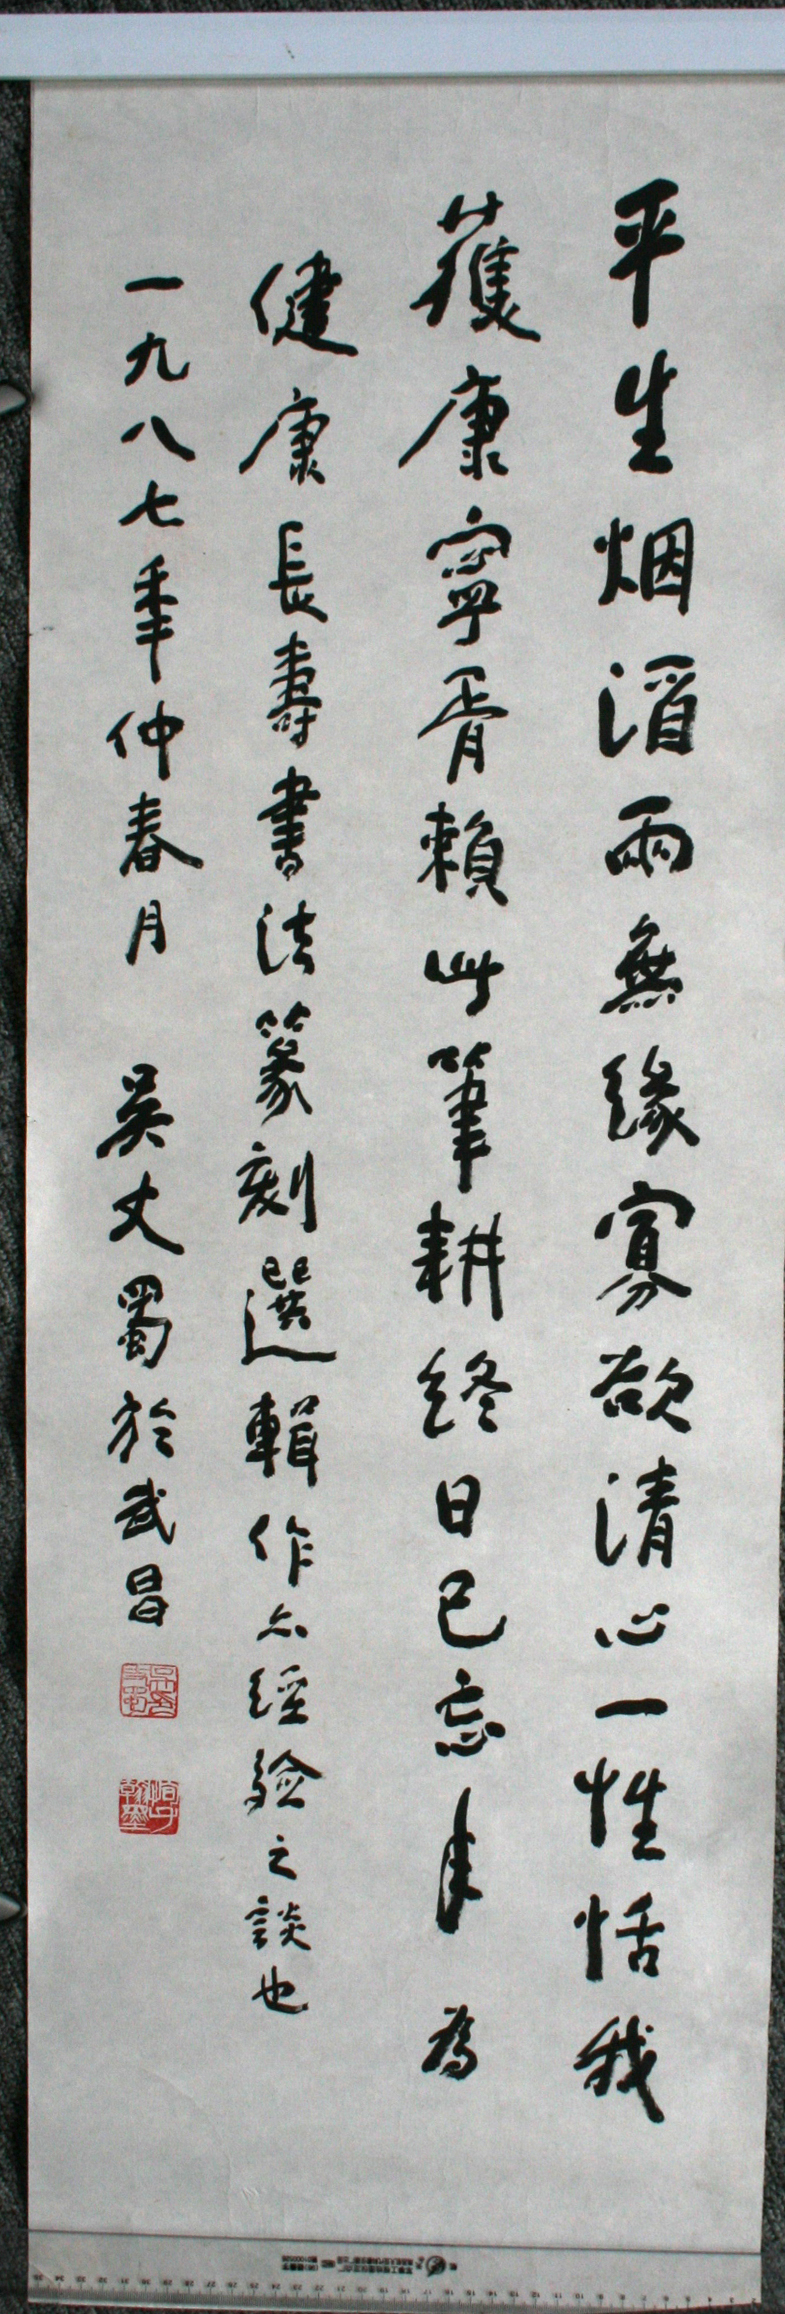 平生烟酒两無緣寡欲清心一性恬我
獲康寧胥賴此筆耕終日已忘年 為
健康長壽書法篆刻選輯作亦經驗之談也
一九八七年仲春月 吴丈蜀於武昌